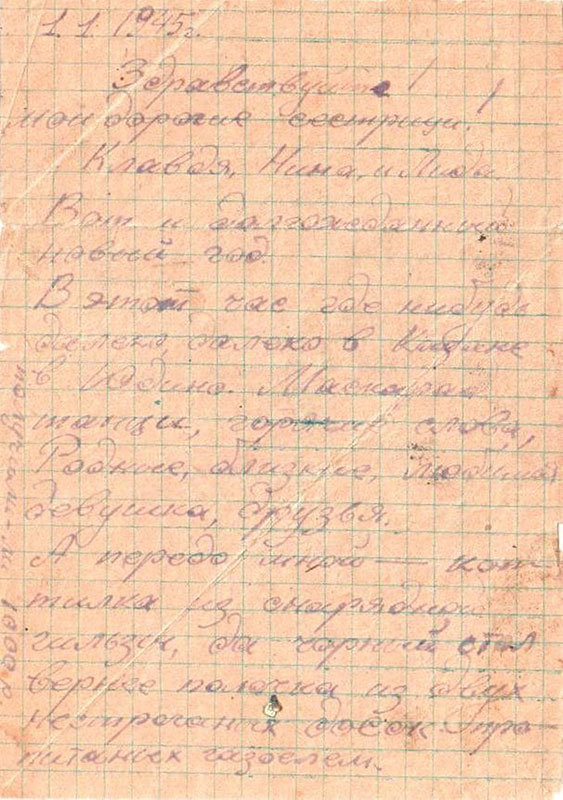 1.1 1945г.
Здравствуйте!
мои дорогие сестрицы!
Клавдя, Нина, и Лида
Вот и долгожданный
новый год.
В этот час где нибудь
далеко, далеко в Казане
в Юдино. Маскарад
танцы, горячие слова,
Родные, близкие, любимая
девушка, друзья.
А передо мной — коп-
тилка из снарядной
гильзы, да чорный стол
вернее полочка из двух
нестроганых досок про-
питаных газоелем.
получили-ли 1000 р.